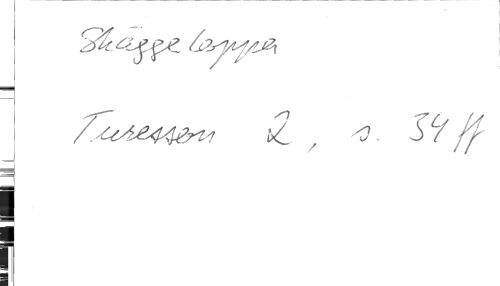 Skäggeloppa
Turesson 2, s. 34 ff